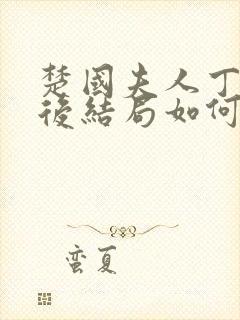 楚國夫人丁
後結局如何
蛮夏